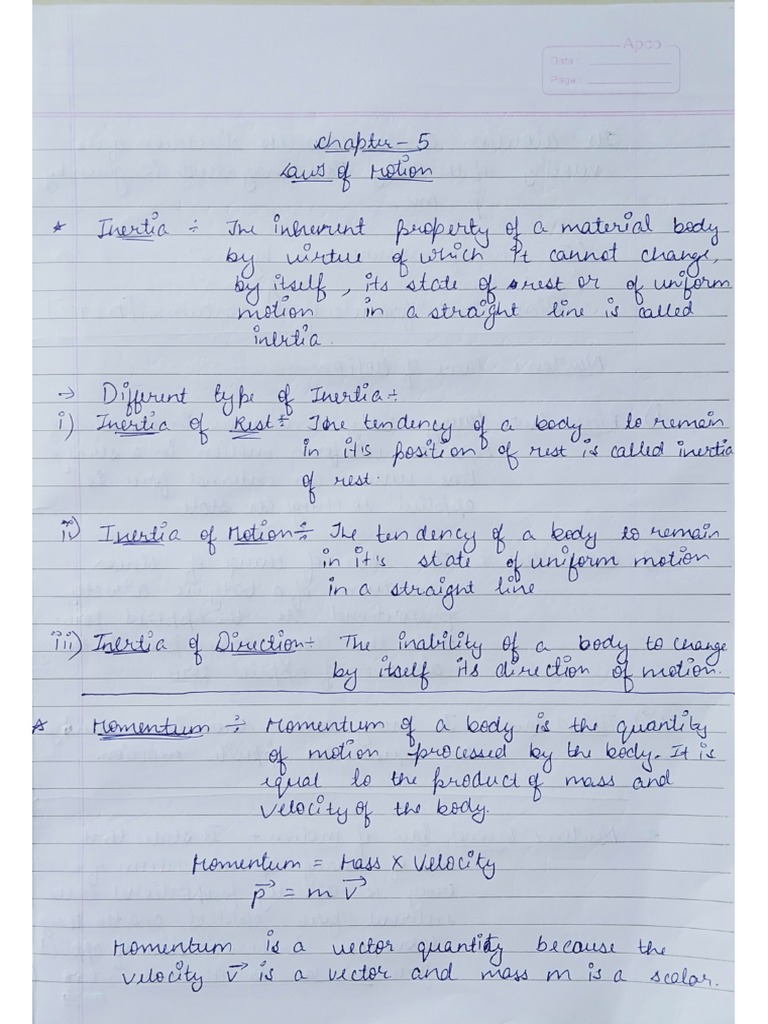 Apco
Date:
Page:
Chapter - 5
Laws of Motion
* Inertia ÷ The inherent property of a material body
by virtue of which It cannot change,
by itself, its state of rest or of uniform
motion in a straight line is called
inertia.
→ Different type of Inertia ÷
i) Inertia of Rest ÷ The tendency of a body to remain
in it's position of rest is called inertia
of rest.
ii) Inertia of Motion ÷ The tendency of a body to remain
in it's state of uniform motion
in a straight line
iii) Inertia of Direction ÷ The inability of a body to change
by itself its direction of motion.
* Momentum ÷ Momentum of a body is the quantity
of motion processed by the body. It is
equal to the product of mass and
velocity of the body.
Momentum = Mass × Velocity
p⃗ = m v⃗
Momentum is a vector quantity because the
velocity v⃗ is a vector and mass m is a scalar.